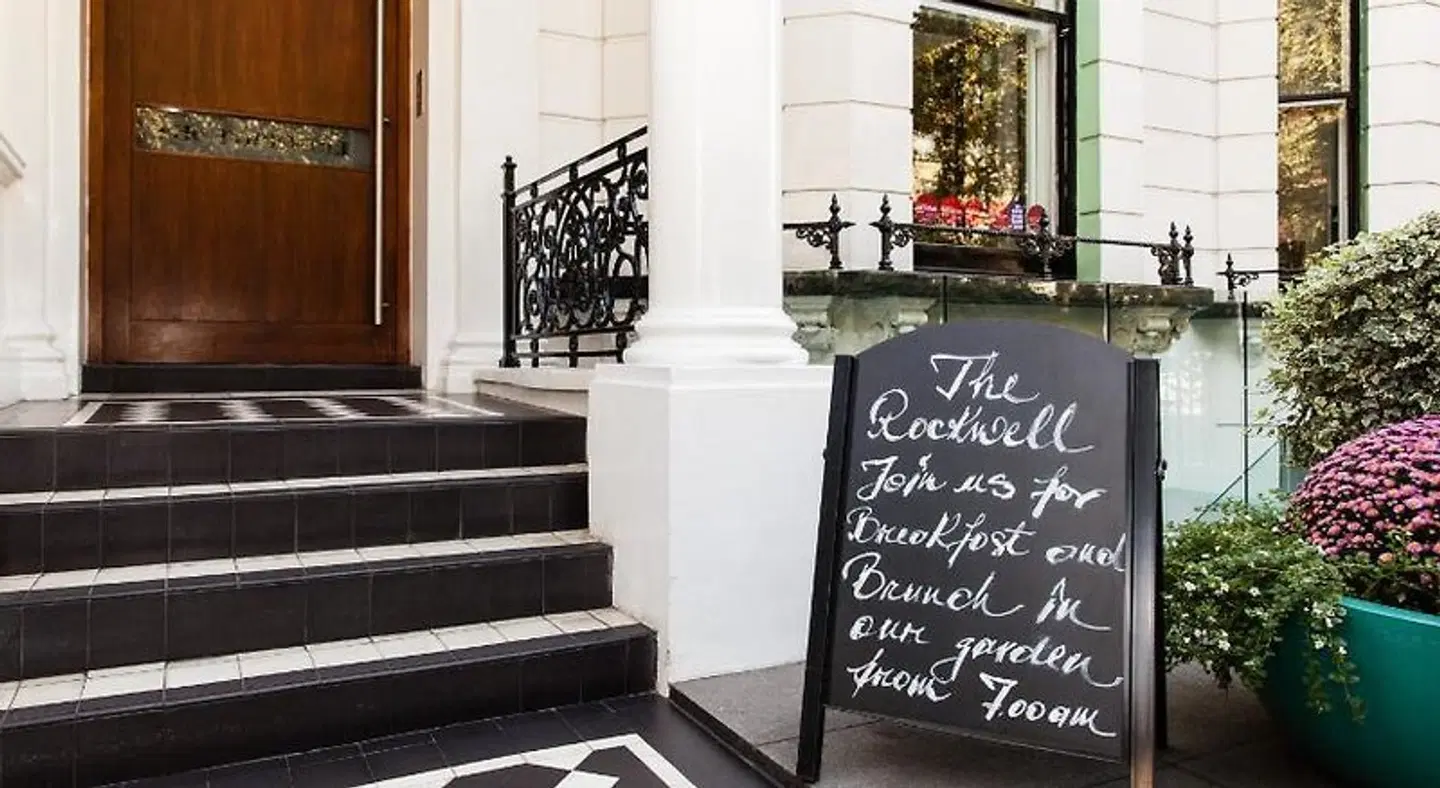 The
Rockwell
Join us for
Breakfast and
Brunch in
our garden
from 7.00am